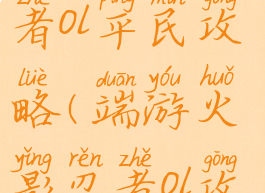 zhě píng mín gōng
者Ol平民攻
lüè duān yóu huǒ
略(端游火
yǐng rěn zhě gōng
影忍者Ol攻